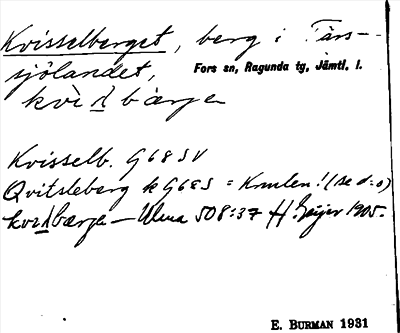 Kvisselberget, berg i Fårs-
sjölandet, Fors sn, Ragunda tg, Jämtl. l.
kvìʌbærje
Kvisselb. G68SV
Qvitsleberg k G68S = Knulen! (se d:o)
kviʌbærje — Ulma 508:37 H. Geijer 1905.
E. BURMAN 1931